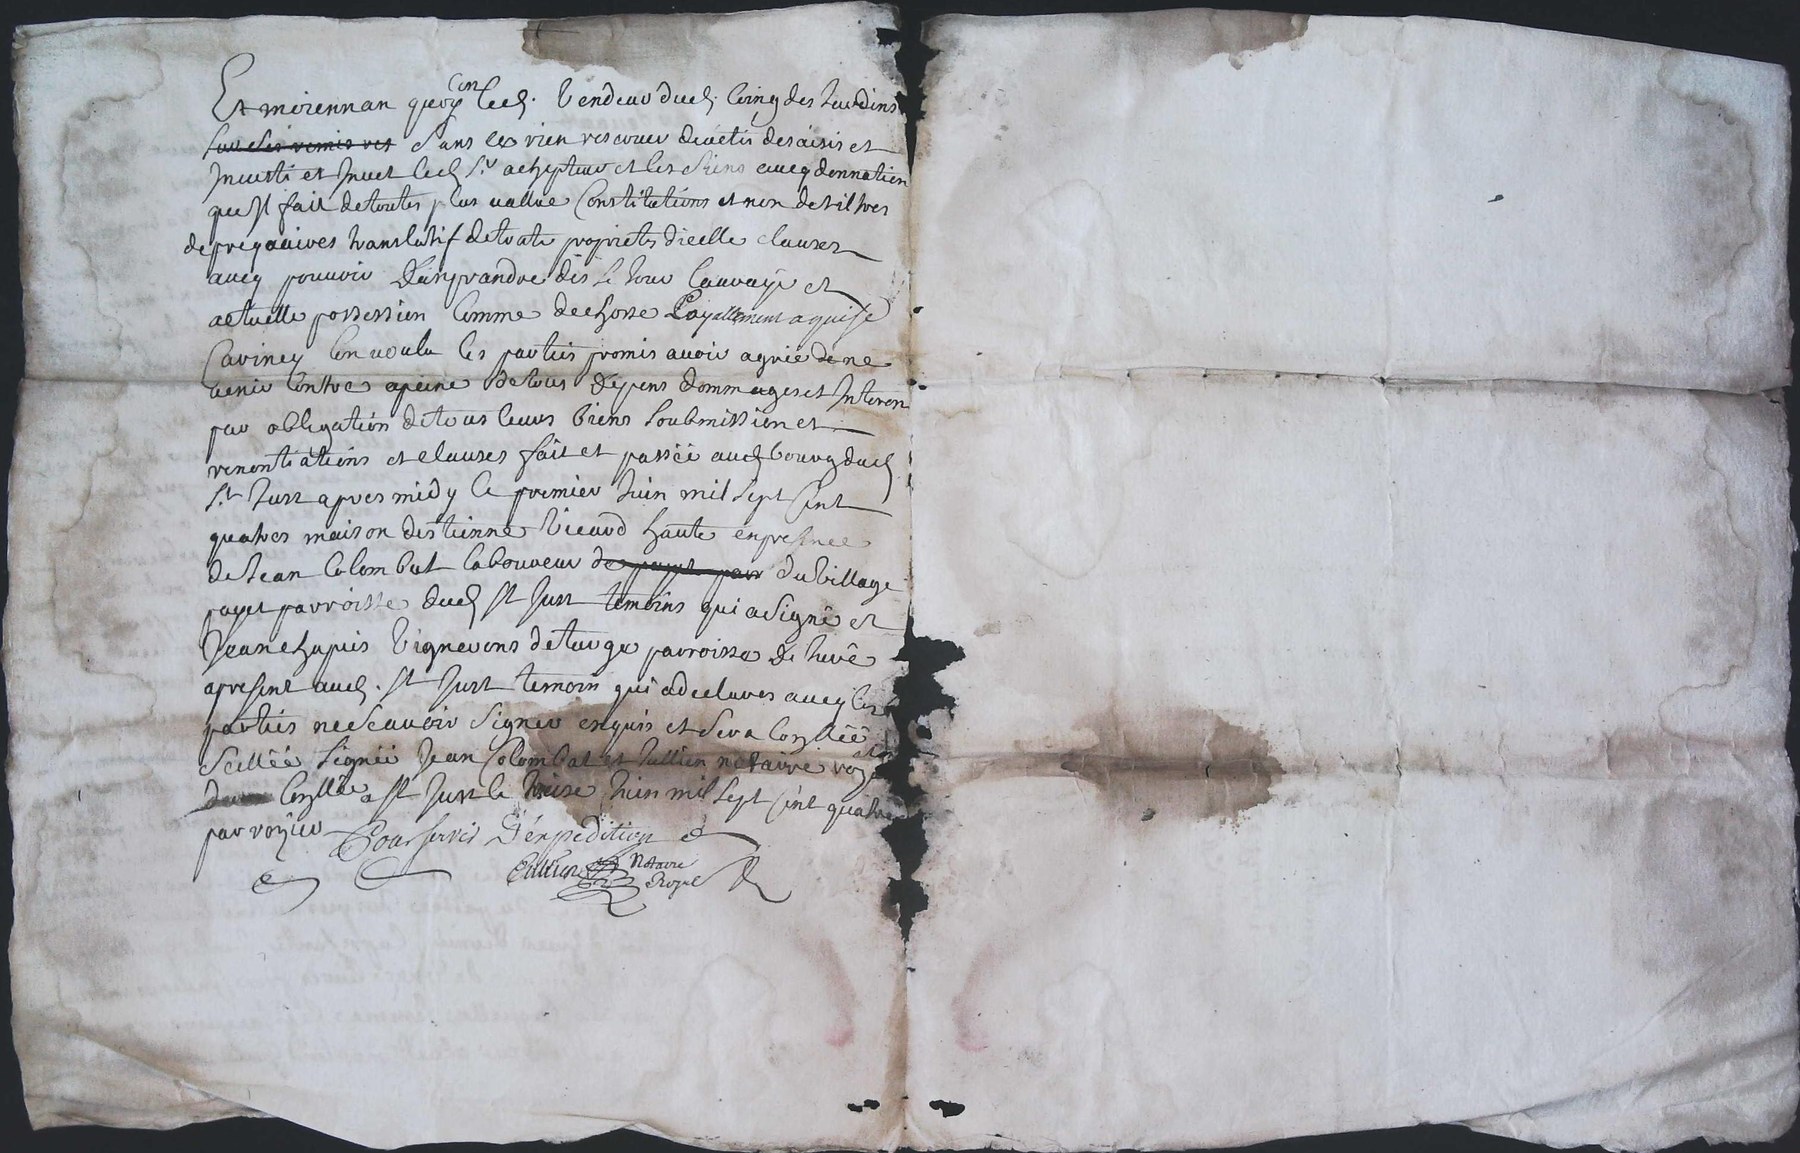 Et moiennan quoy con led. Vendeur dud. Coing de Jardins
sans en rien reserver devetis desaisis et
Jnuesti et Jnuet led Sr achepteur et les Siens aueq donnation
qu Jl fait de toutes plus vallue Constitutions et non desiltres
de preqaires translatif de toute propriete dicelle clauzes
aueq pouvoir Den prandre dès Ce Jour La uraÿe et
actuelle possession Comme de chosse Loyallement aquise
Car aincy Lon voulu les parties promis auoir agrée de ne
venir Contre apeine de tous dépens dommages et Jnterest
par obligation de tous leurs biens Soubmission et
renontiations et clauses fait et passée aud bourg dud
St Just apres midy le premier Juin mil sept Cent
quatres maison destienne Vicard haute en presence
de Jean Colombat Laboureur du Village
paroisse dud St Just temoins qui a Signé et
Jean chapuis Vignerons de paroisse De
apresent aud. St Just temoin qui a declarer aueq les
parties ne Scauoir Signer enquis et Sera Conllée
Scellée Signée Jean Colombat et Jullien notaire royal
Conllée a St Just le treize Juin mil sept Cent quatre
par royer Pour servir D'expedition
Jullien Notaire
Royal